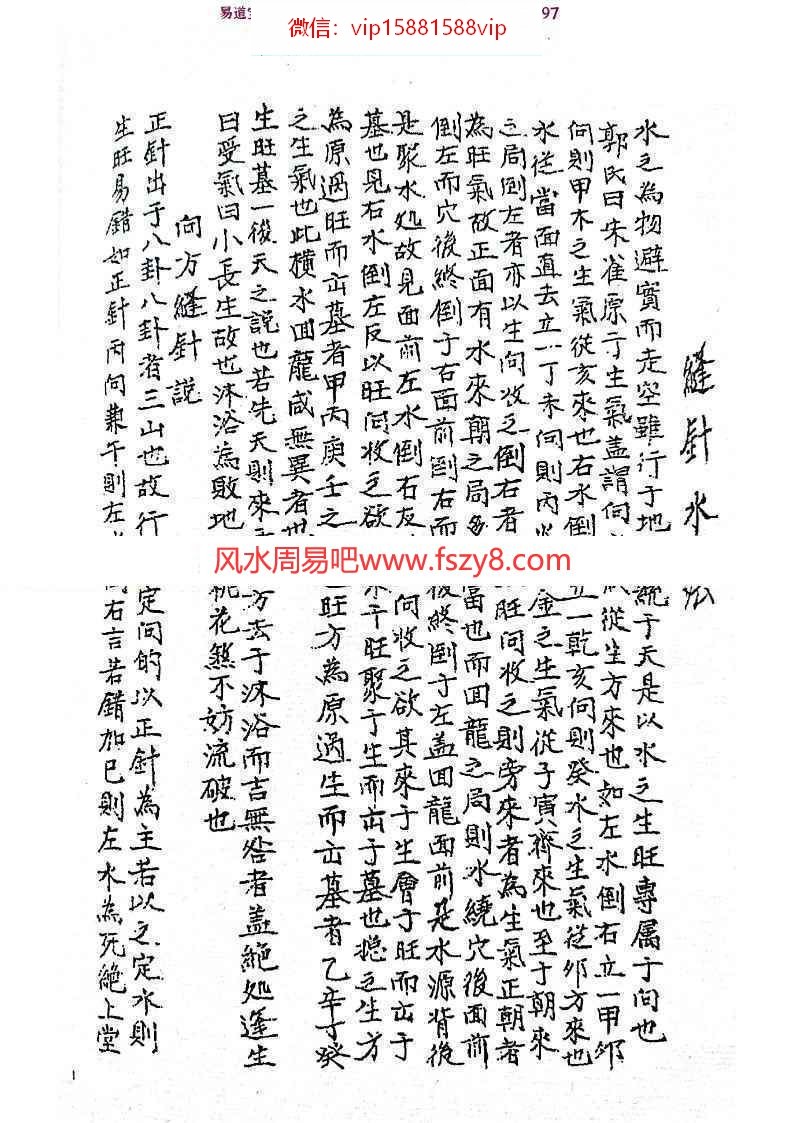 易道
97
微信：vip15881588vip
縫針水法
水之為物避實而走空雖行于地
統于天是以水之生旺專属于向也
郭氏曰朱雀原于生氣盖謂向
從生方來也如左水倒右立一甲卯
向則甲木之生氣從亥來也右水倒
立一乾亥向則癸水之生氣從卯方來也
水從當面直去立一丁未向則丙火
金之生氣從子寅齊來也至于朝來
之局倒左者亦以生向收之倒右者
旺向收之則旁來者為生氣正朝者
為旺氣故正面有水來朝之局多
當也而回龍之局則水繞穴後面前
倒左而穴後終倒于右面前倒右而
後終倒于左盖回龍面前是水源背後
是聚水处故見面前左水倒右反
向收之欲其來于生會于旺而出于
墓也見右水倒左反以旺向收之欲
來于旺聚于生而出于墓也總之生方
為原過旺而出墓者甲丙庚壬之
旺方為原過生而出墓者乙辛丁癸
之生氣也此橫水回龍咸無異者也
生旺墓一後天之說也若先天則來
方去于沐浴而吉無咎者盖絕处逢生
曰受氣曰小長生故也沐浴為敗地
桃花煞不妨流破也
向方縫針說
正針出于八卦八卦者三山也故行
定向的以正針為主若以之定水則
生旺易錯如正針丙向兼午則左
右言若錯加巳則左水為死絕上堂
风水周易吧www.fszy8.com
1